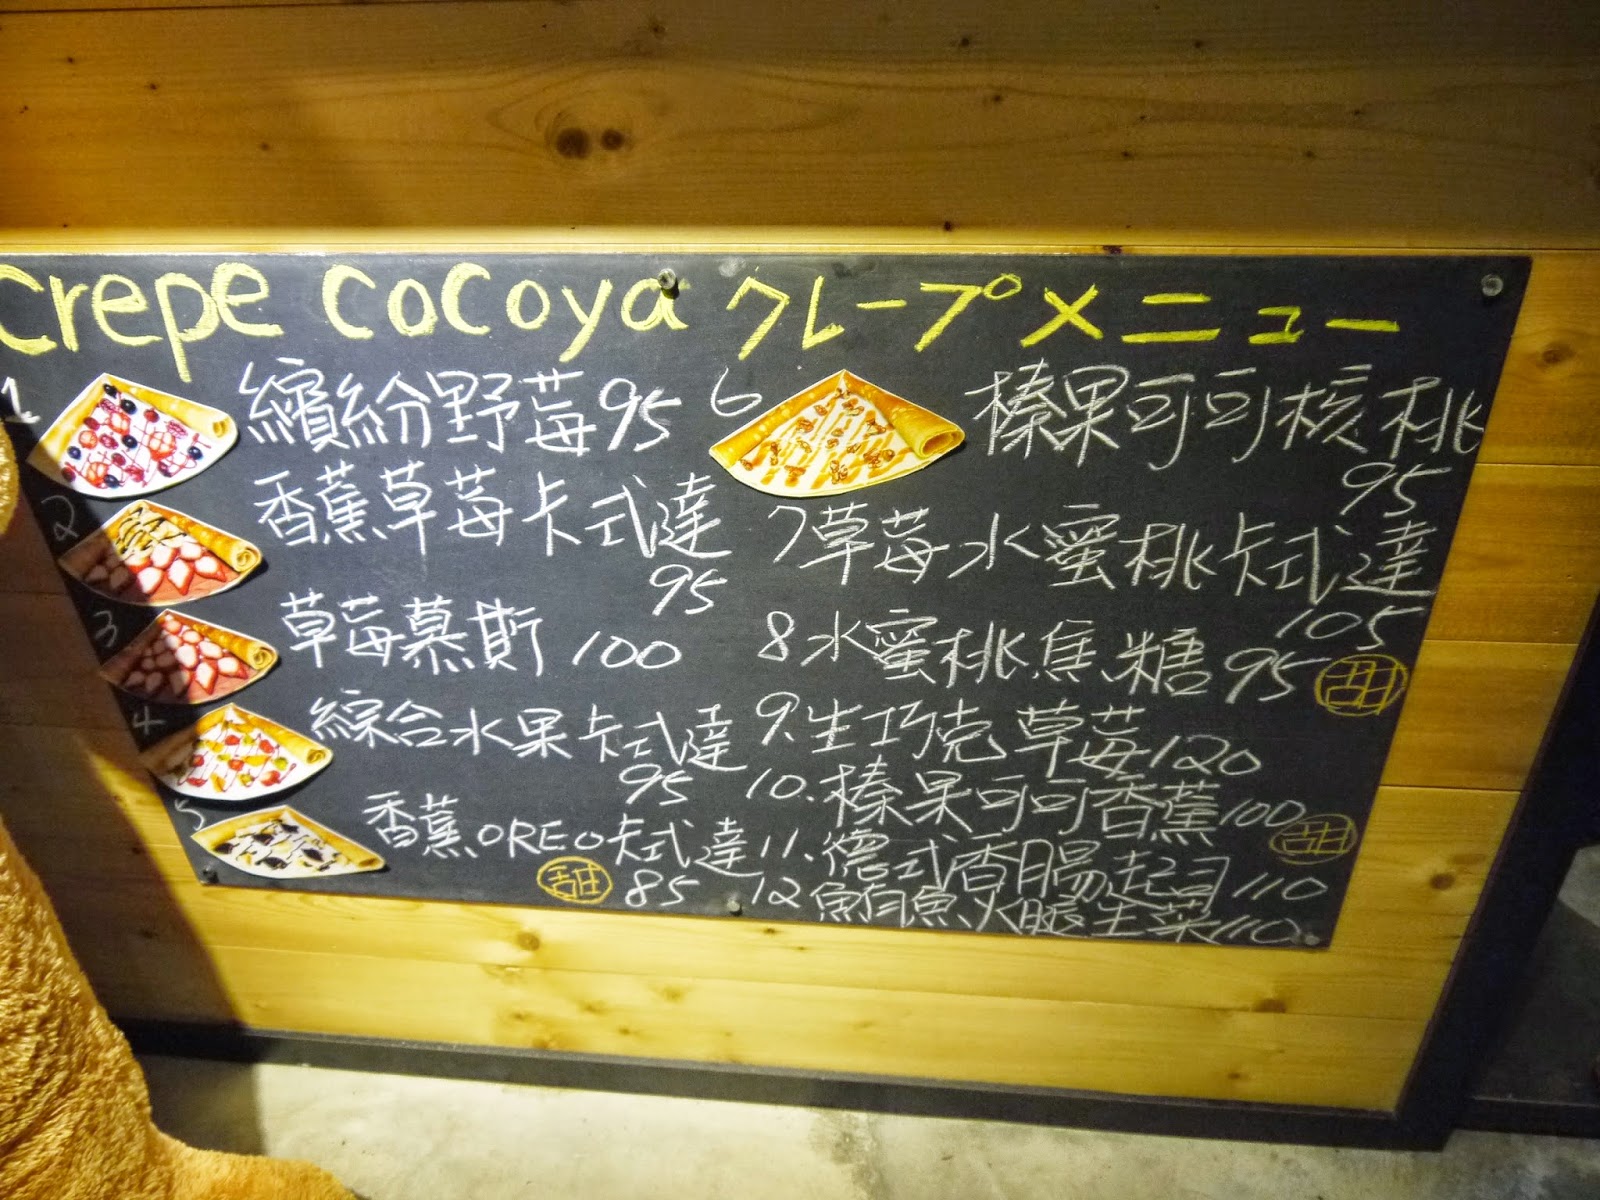 Crepe cocoya クレープメニュー
1 繽紛野莓95
2 香蕉草莓卡式達
95
3 草莓慕斯 100
4 綜合水果卡式達
95
5 香蕉OREO卡式達
甜 85
6 榛果可可核桃
95
7草莓水蜜桃卡式達
105
8水蜜桃焦糖95 甜
9.生巧克草莓120
10.榛果可可香蕉100 甜
11.德式香腸起司110
12鮪魚火腿生菜110